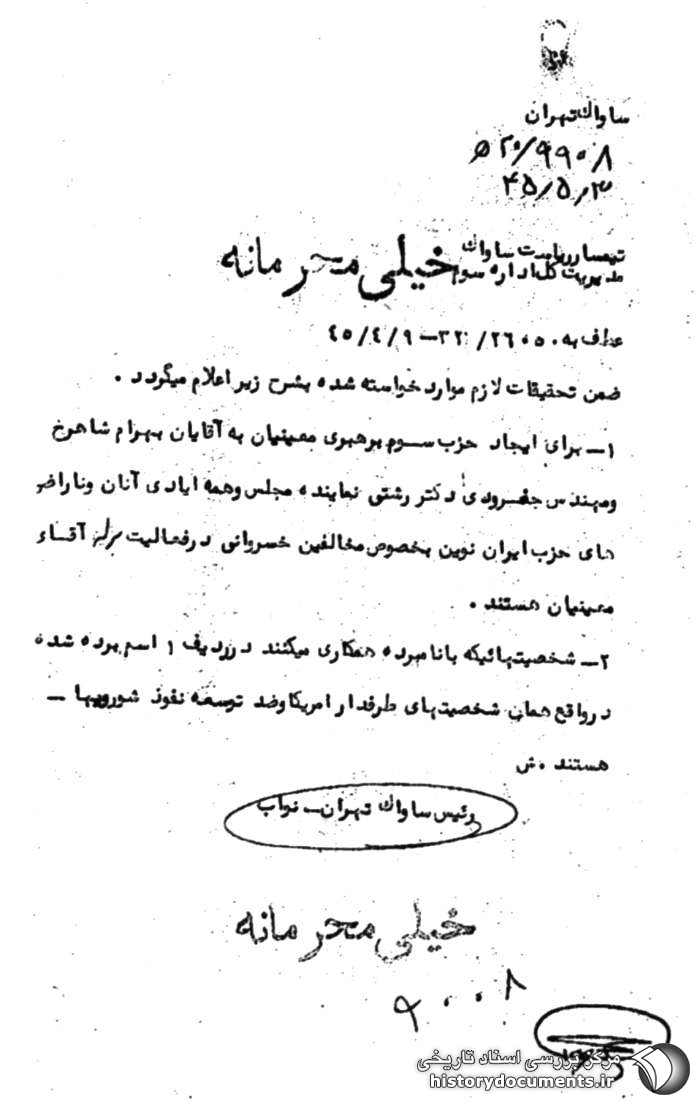 ساواك تهران
۲۰/۹۹۰۸ ه
۴۵/۵/۳
تیمسار ریاست ساواك
مدیریت کل اداره سوم
خیلی محرمانه
عطف به ۰ ۲۶۰۵/ ۳۲۱ – ۴۵/۴/۹
ضمن تحقیقات لازم موارد خواسته شده بشرح زیر اعلام میگردد .
۱– برای ایجاد حزب سوم برهبری معینیان به آقایان بهرام شاهرخ
ومهندس جفرودی دکتر رشتی نماینده مجلس وهمه ایادی آنان وناراضی
های حزب ایران نوین بخصوص مخالفین خسروانی درفعالیت آقای
معینیان هستند .
۲– شخصیت‌هائیکه با نامبرده همکاری میکنند درردیف ۱ اسم برده شده
درواقع همان شخصیتهای طرفدار امریکا وضد توسعه نفوذ شورویها –
هستند .ش
رئیس ساواك تهران – نواب
خیلی محرمانه
۹۰۰۸
مرکز بررسی اسناد تاریخی
historydocuments.ir